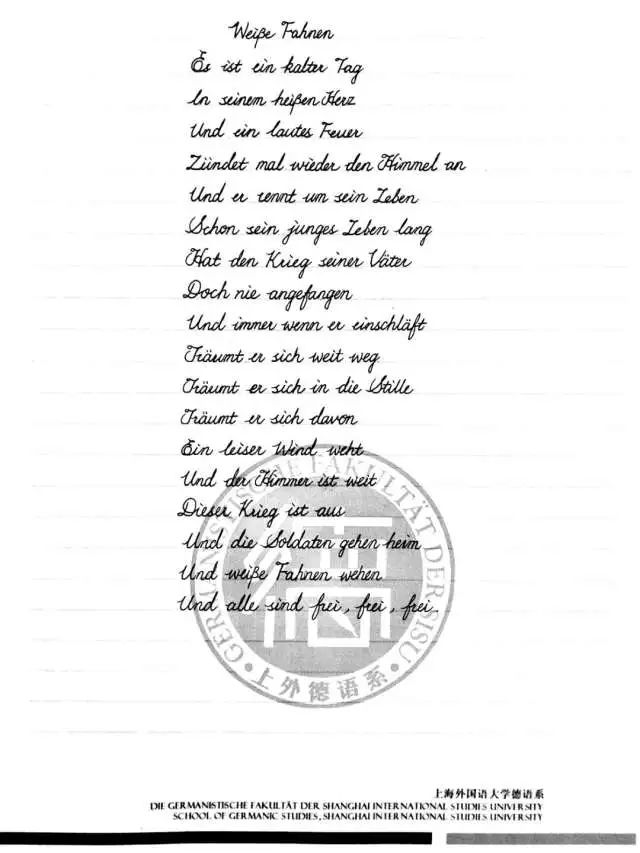 Weiße Fahnen
Es ist ein kalter Tag
In seinem heißen Herz
Und ein lautes Feuer
Zündet mal wieder den Himmel an
Und er rennt um sein Leben
Schon sein junges Leben lang
Hat den Krieg seiner Väter
Doch nie angefangen
Und immer wenn er einschläft
Träumt er sich weit weg
Träumt er sich in die Stille
Träumt er sich davon
Ein leiser Wind weht
Und der Himmer ist weit
Dieser Krieg ist aus
Und die Soldaten gehen heim
Und weiße Fahnen wehen
Und alle sind frei, frei, frei.
GERMANISTISCHE FAKULTÄT DER SISU
上外德语系
上海外国语大学德语系
DIE GERMANISTISCHE FAKULTÄT DER SHANGHAI INTERNATIONAL STUDIES UNIVERSITY
SCHOOL OF GERMANIC STUDIES, SHANGHAI INTERNATIONAL STUDIES UNIVERSITY